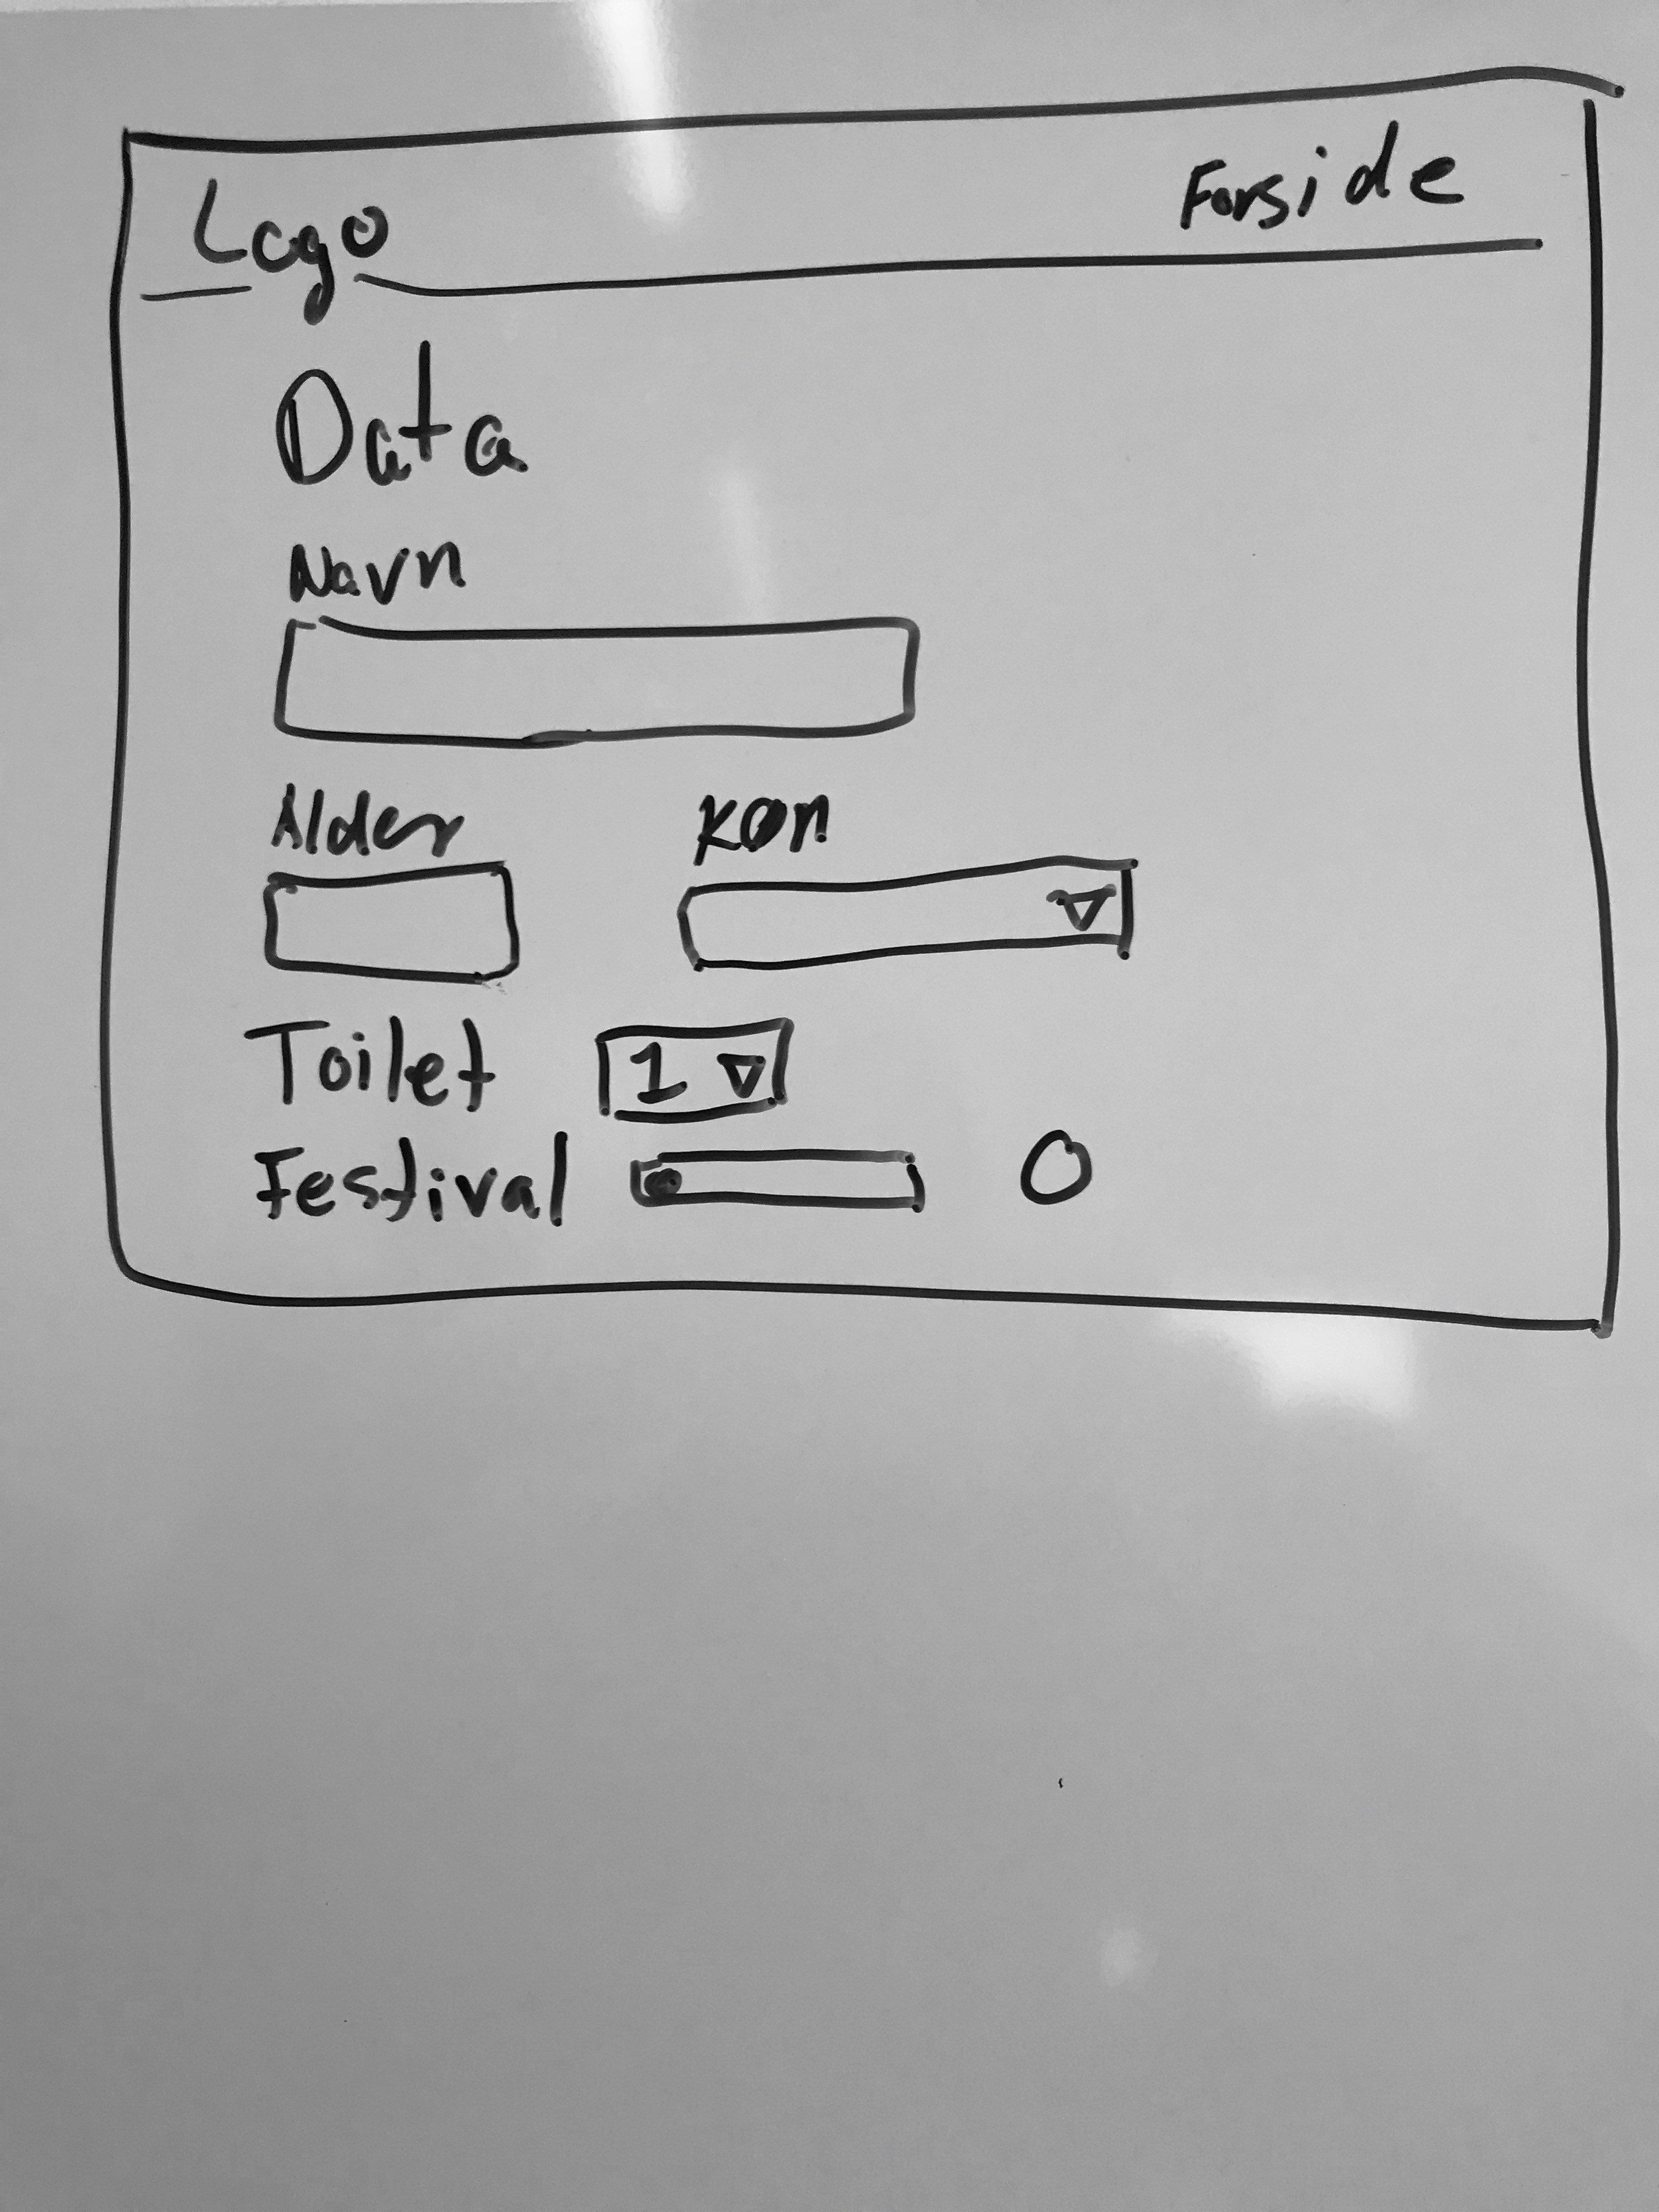 Logo Forside
Data
Navn
Alder Køn
Toilet 1
Festival 0